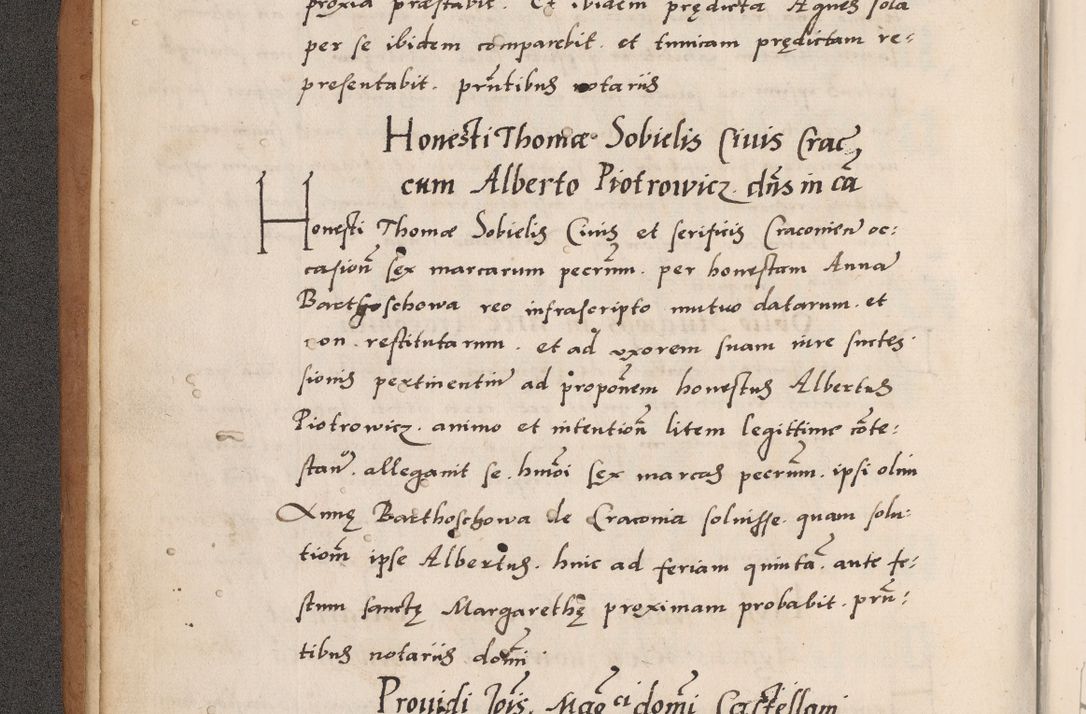 proxia præstabit. Et ibidem prędicta Agnes sola
per se ibidem comparebit. et tunicam prędictam re-
presentabit. prñtibus notariis
Honesti Thomæ Sobielis Ciuis Crac,
cum Alberto Piotrowicz. dñs in cã
Honesti Thomæ Sobielis Ciuis et serificis Craconien̄ oc:
casion̄ sex marcarum pecun̄. per honestam Annā
Barthoschowa reo infrascripto mutuo datarum. et
non. restitutarum. et ad uxorem suam iure succes:
sionis pertinentiū ad proponem honestus Albertus
Piotrowicz. animo et intention̄ litem legittime cõte:
stan̄. allegauit se. hmõi sex marcas pecun̄. ipsi olim
Annę Barthoschowa de Craconia soluisse. quam solu:
tiom̄ ipse Albertus. huic ad feriam quintã. ante fe:
stum sanctę Margarethę proximam probabit. prñ:
tibus notariis dom̄i
Prouidi Jois. Mag ci dom̄i Castellani